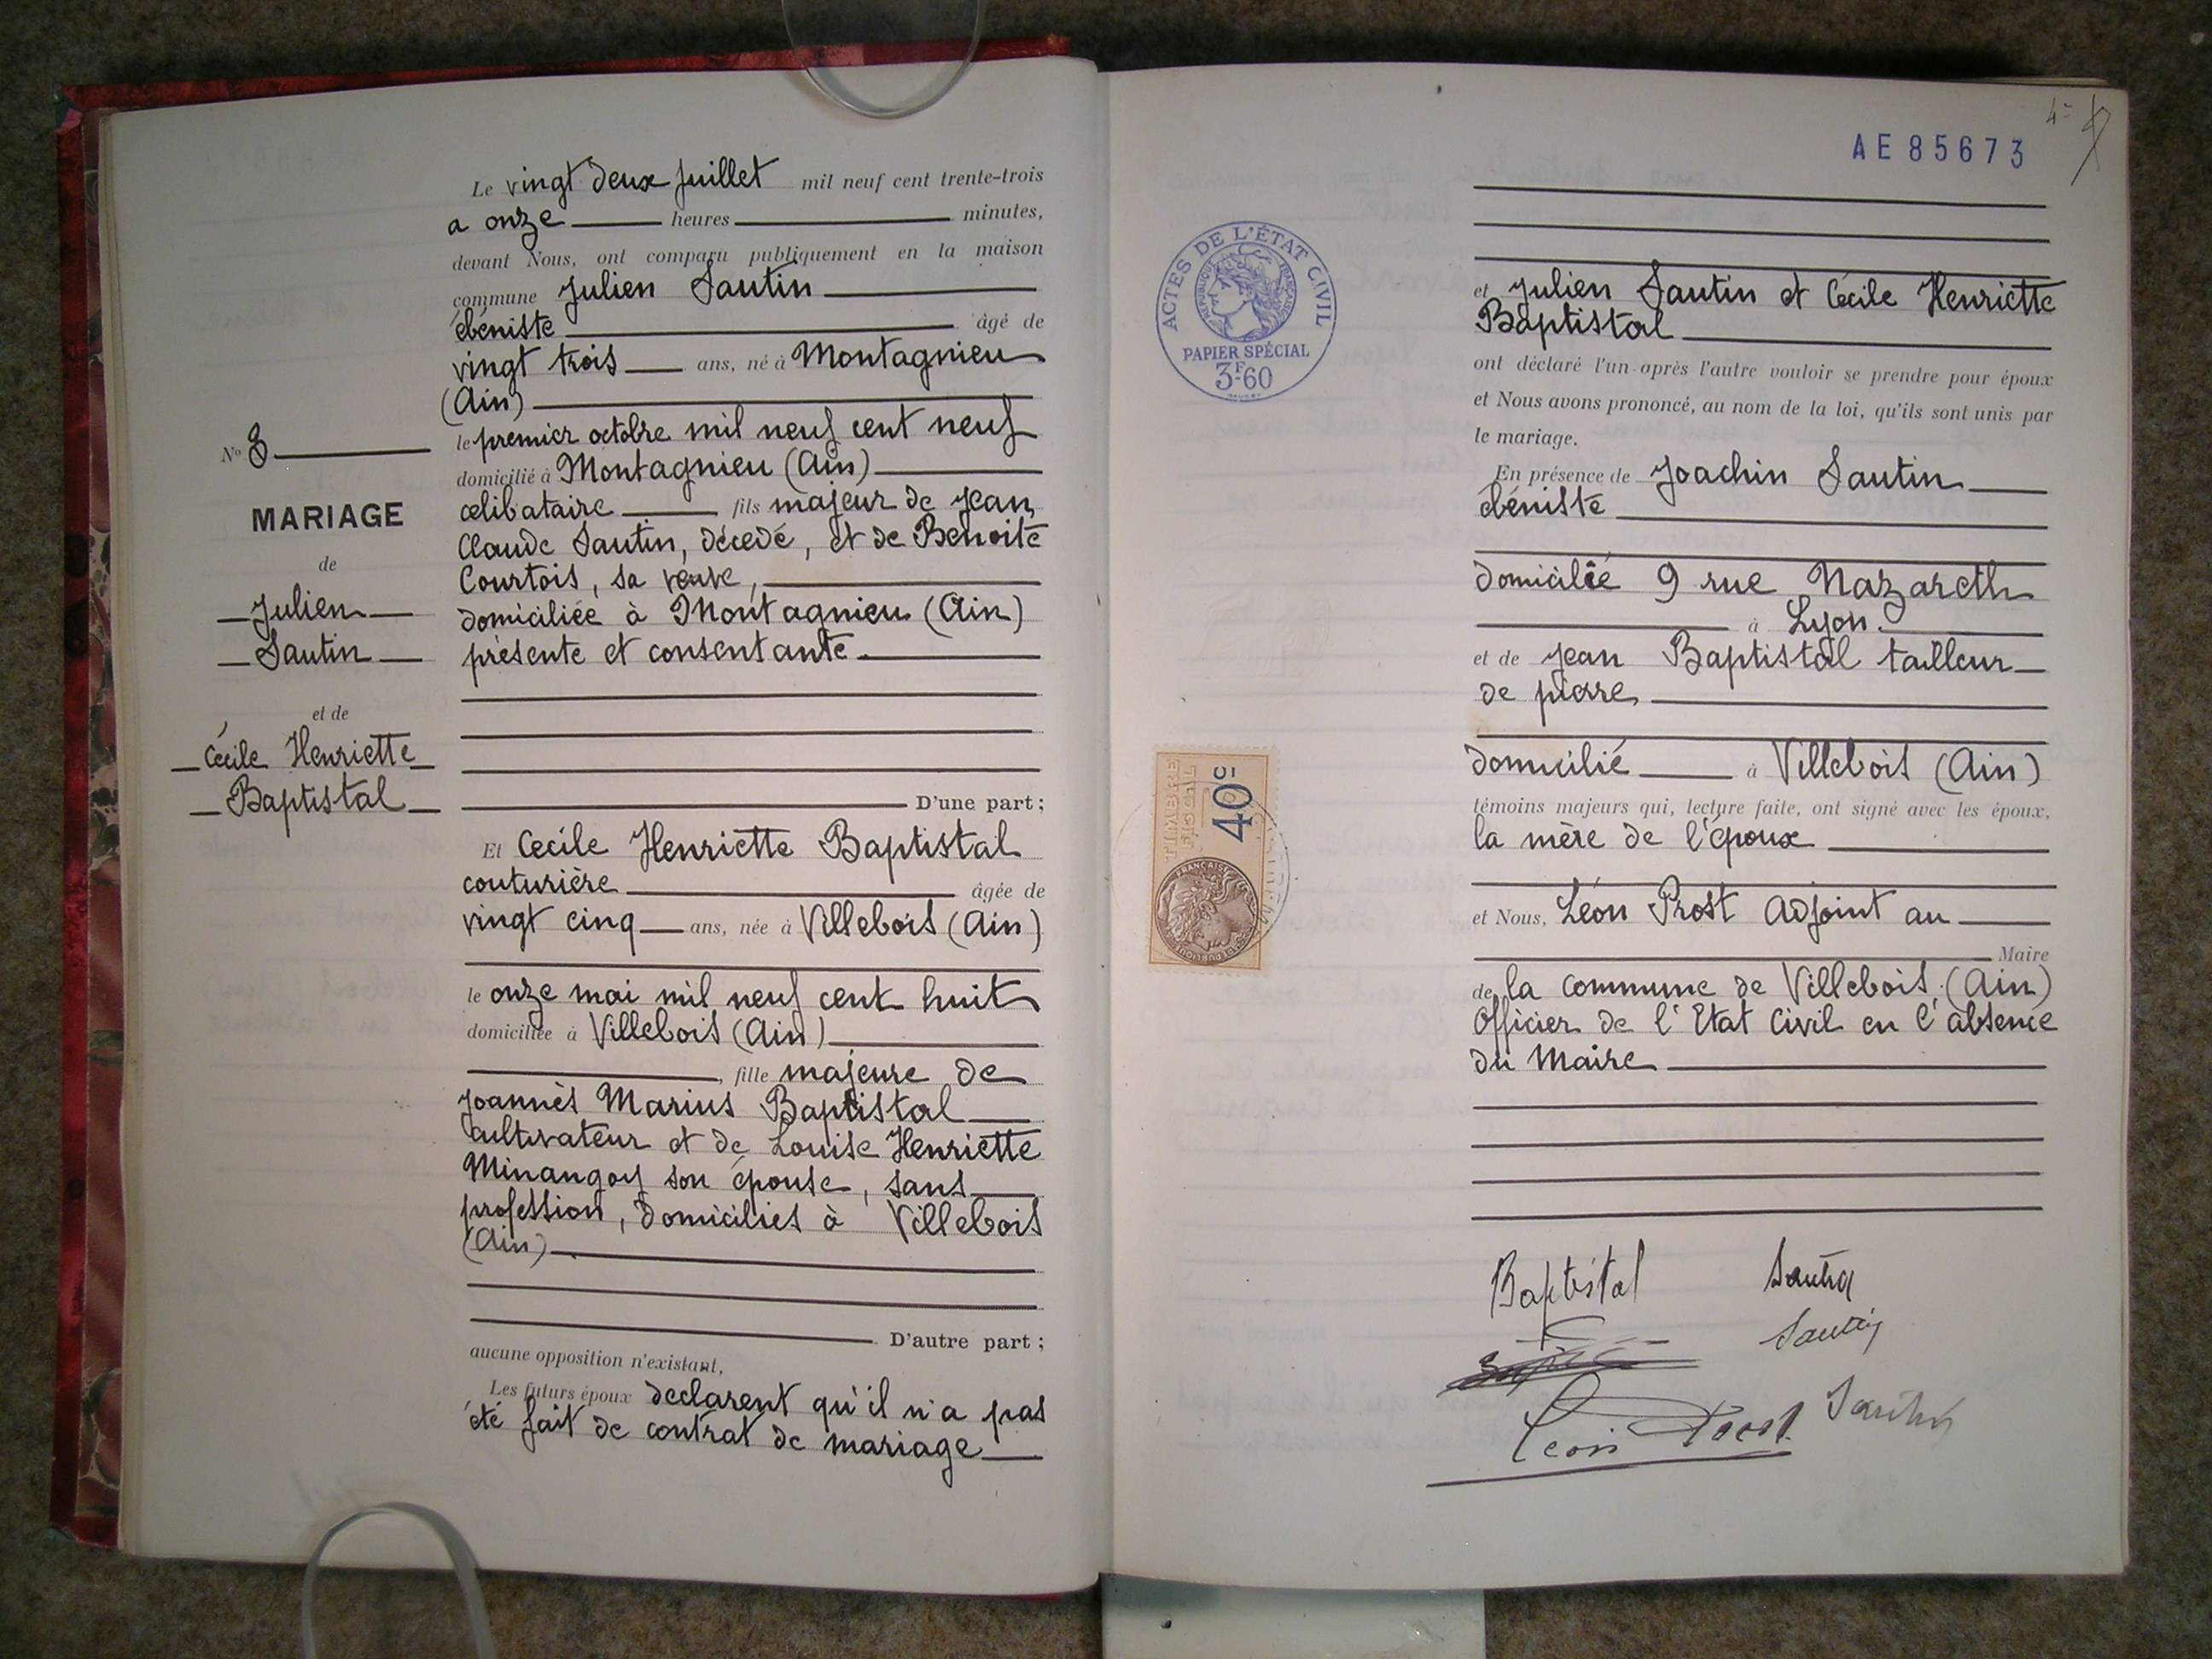 Le vingt deux juillet mil neuf cent trente-trois
a onze heures minutes,
devant Nous, ont comparu publiquement en la maison
commune Julien Sautin
ébéniste âgé de
vingt trois ans, né à Montagnieu
(Ain)
le premier octobre mil neuf cent neuf
domicilié à Montagnieu (Ain)
célibataire fils majeur de Jean
Claude Sautin, décédé, et de Benoite
Courtois, sa veuve,
domiciliée à Montagnieu (Ain)
présente et consentante.
D'une part;
Et Cecile Henriette Baptistal
couturière âgée de
vingt cinq ans, née à Villebois (Ain)
le onze mai mil neuf cent huit
domiciliée à Villebois (Ain)
, fille majeure de
Joannès Marius Baptistal
cultivateur et de Louise Henriette
Minangoy son épouse, sans
profession, domiciliés à Villebois
(Ain)
D'autre part;
aucune opposition n'existant,
Les futurs époux declarent qu'il n'a pas
été fait de contrat de mariage
N° 8
MARIAGE
de
Julien
Sautin
et de
Cécile Henriette
Baptistal
AE 85673
ACTES DE L'ÉTAT CIVIL
RÉPUBLIQUE FRANÇAISE
PAPIER SPÉCIAL
3F.60
TIMBRE
FISCAL
40c
et Julien Sautin et Cécile Henriette
Baptistal
ont déclaré l'un après l'autre vouloir se prendre pour époux
et Nous avons prononcé, au nom de la loi, qu'ils sont unis par
le mariage.
En présence de Joachin Sautin
ébéniste
domicilié 9 rue Nazareth
à Lyon.
et de Jean Baptistal tailleur
de pierre
domicilié à Villebois (Ain)
témoins majeurs qui, lecture faite, ont signé avec les époux,
la mère de l'époux
et Nous, Léon Prost Adjoint au
Maire
de la commune de Villebois (Ain)
Officier de l'Etat Civil en l'absence
du Maire
Baptistal Sautin
Sautin
Léon Prost Sautin